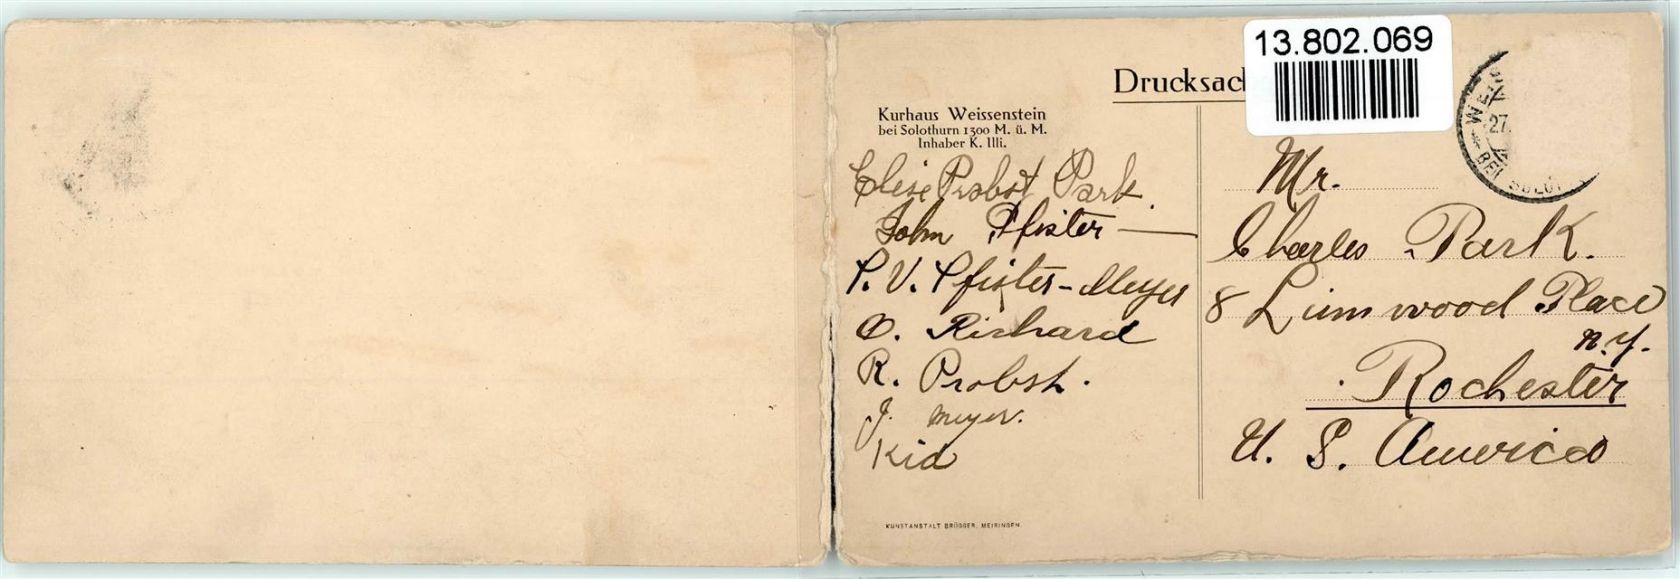 13.802.069
Drucksac
Kurhaus Weissenstein
bei Solothurn 1300 M. ü. M.
Inhaber K. Illi.
Elise Probst Park.
John Pfister —
P. V. Pfister-Meyer
O. Richard
R. Probst.
J. Meyer.
Kid
KUNSTANSTALT BRÜGGER, MEIRINGEN.
27.
Mr.
Charles Park.
8 Limwood Place
N.Y.
Rochester
U. S. America